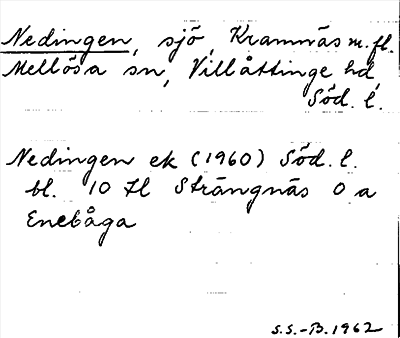 Nedingen, sjö, Kramnäs m.fl.
Mellösa sn, Villåttinge hd,
Söd. l.
Nedingen ek (1960) Söd. l.
bl. 10 tl Strängnäs O a
Enebåga
S.S.-B. 1962